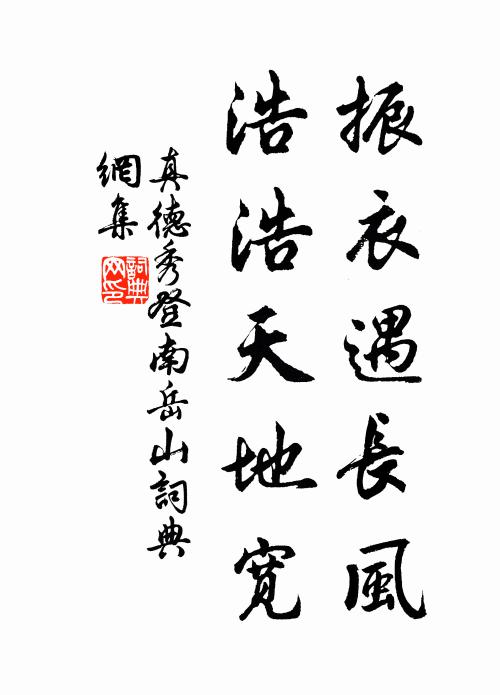 振衣遇長風
浩浩天地寬
真德秀登南岳山詞典
網集
詞典
网印